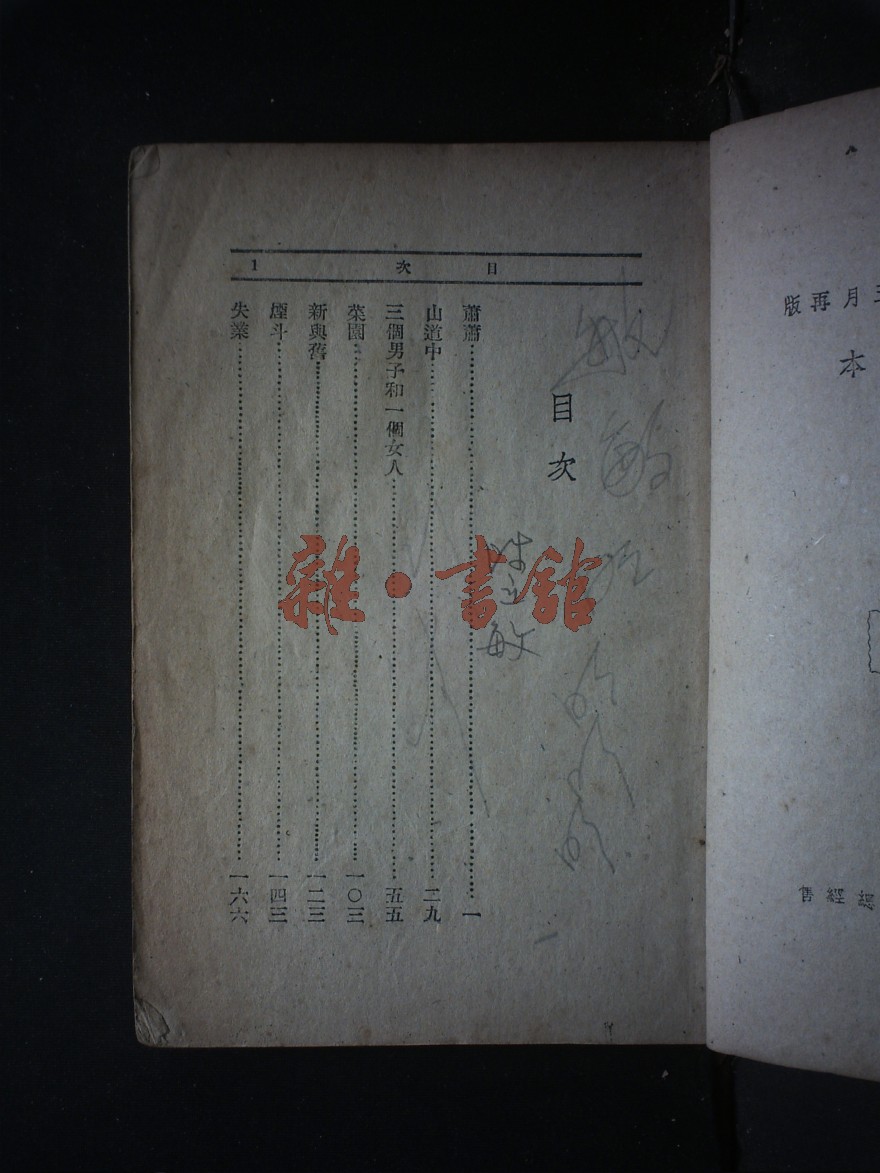 版再月三
本
售經總
目次 1
目次
蕭蕭……一
山道中……二九
三個男子和一個女人……五五
菜園……一〇三
新與舊……一二三
煙斗……一四三
失業……一六六
雜·書館
敏
敏